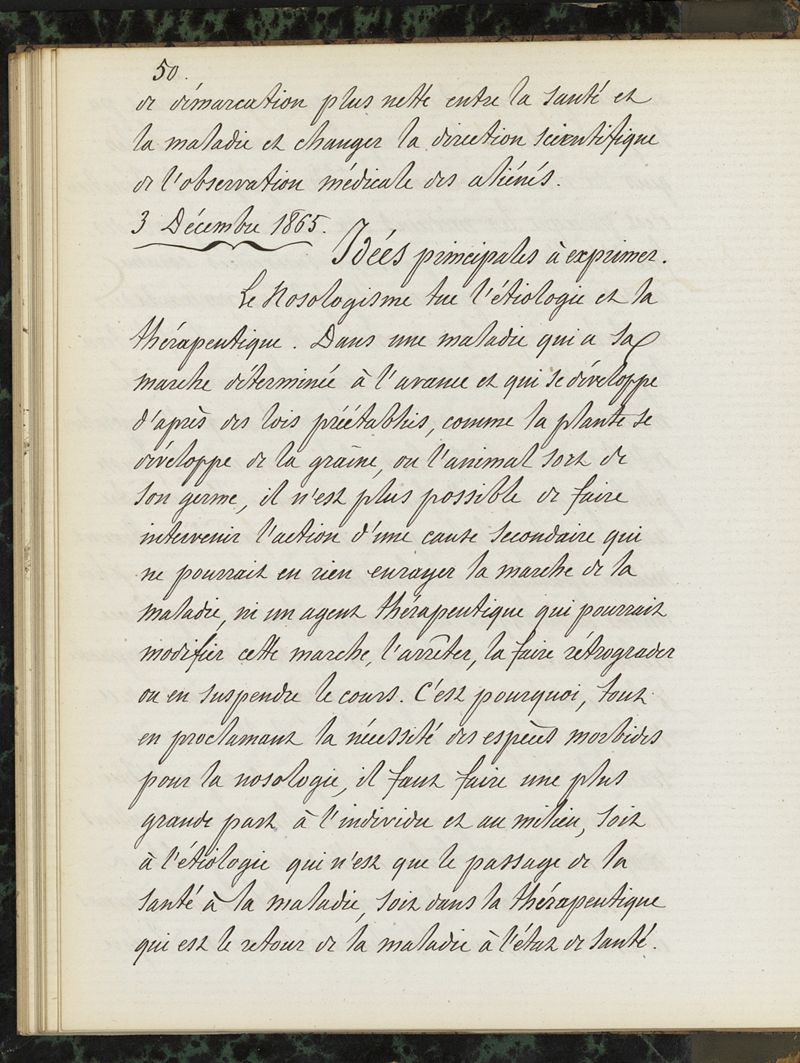 50.
de démarcation plus nette entre la santé et
la maladie et changer la direction scientifique
de l'observation médicale des aliénés.
3 Décembre 1865.
Idées principales à exprimer.
Le Nosologisme tue l'étiologie et la
thérapeutique. Dans une maladie qui a sa
marche déterminée à l'avance et qui se développe
d'après des lois préétablies, comme la plante se
développe de la graine, ou l'animal sort de
son germe, il n'est plus possible de faire
intervenir l'action d'une cause secondaire qui
ne pourrait en rien enrayer la marche de la
maladie, ni un agent thérapeutique qui pourrait
modifier cette marche, l'arrêter, la faire rétrograder
ou en suspendre le cours. C'est pourquoi, tout
en proclamant la nécessité des espèces morbides
pour la nosologie, il faut faire une plus
grande part à l'individu et au milieu, soit
à l'étiologie qui n'est que le passage de la
santé à la maladie, soit dans la thérapeutique
qui est le retour de la maladie à l'état de santé.